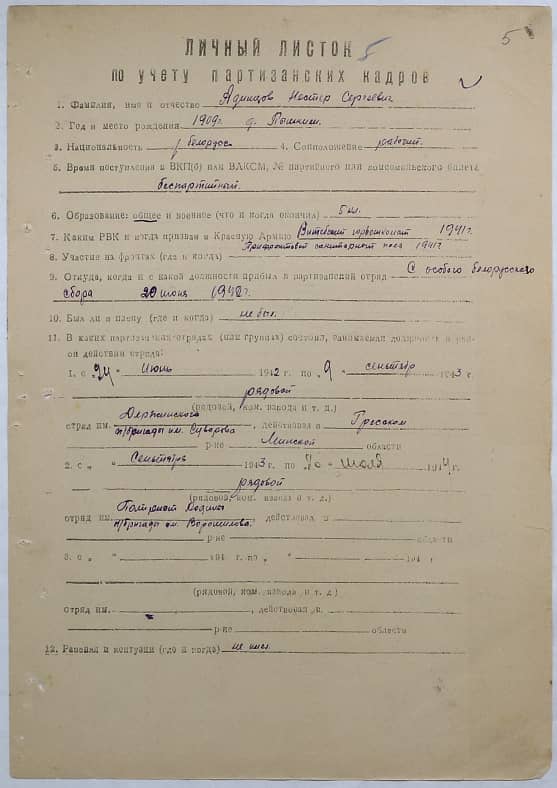 5
ЛИЧНЫЙ ЛИСТОК 5
по учету партизанских кадров
1. Фамилия, имя и отчество Адинцов Нестер Сергеевич
2. Год и место рождения 1909г. д.
3. Национальность белорус 4. Соцположение рабочий.
5. Время поступления в ВКП(б) или ВЛКСМ, № партийного или комсомольского билета
беспартийный.
6. Образование: общее и военное (что и когда окончил) 5 кл.
7. Каким РВК и когда призван в Красную Армию Витебский горвоенкомат 1941г.
8. Участие на фронтах (где и когда) Прифронтовой санитарный поезд 1941г.
9. Откуда, когда и с какой должности прибыл в партизанский отряд С особого белорусского
сбора 20 июня 1942г.
10. Был ли в плену (где и когда) не был.
11. В каких партизанских отрядах (или группах) состоял, занимаемая должность и рай-
он действий отряда:
1. с „24 “ Июнь 1942 г. по „9 “ сентябр 1943 г.
рядовой
(рядовой, ком. взвода и т. д.)
отряд им. Дзержинского п/бригады им. Суворова, действовал в Гресском
р-не Минской области
2. с „ “ Сентября 1943 г. по „10 “ июля 1944г.
рядовой
(рядовой, ком. взвода и т. д.)
отряд им. Патриот Родины п/бригады им. Ворошилова, действовал в
р-не области
3. с „ “ 194 г. по „ “ 194 г.
(рядовой, ком. взвода и т. д.)
отряд им. , действовал в
р-не области
12. Ранения и контузии (где и когда) не имел.